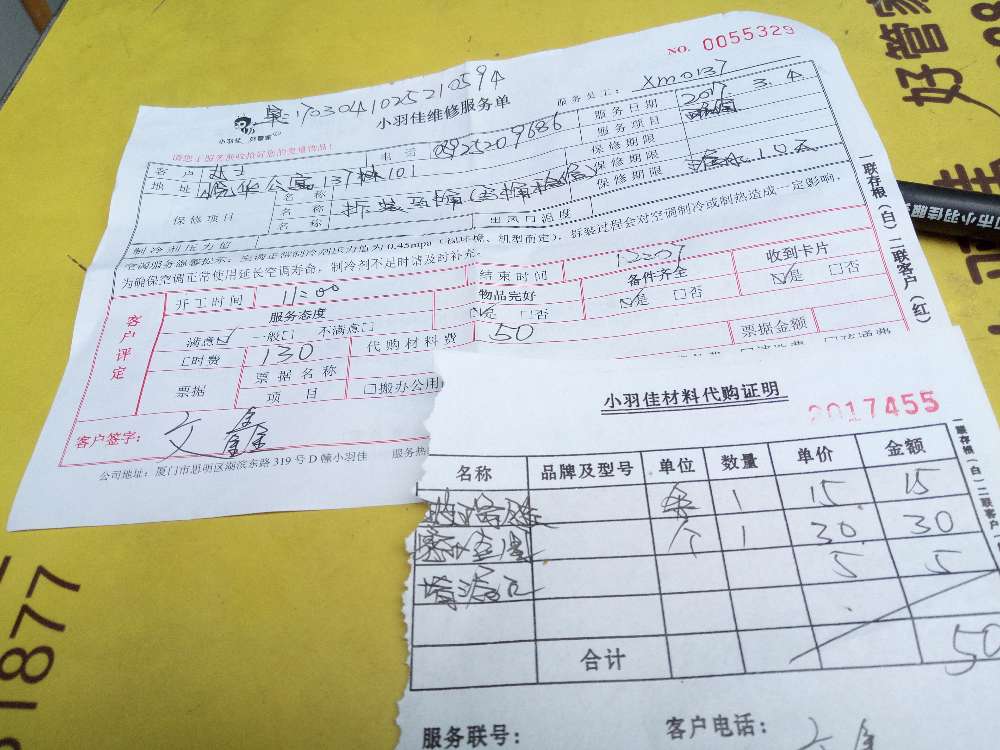 NO. 0055329
单:1703041025210594
小羽佳维修服务单
服务员工: Xm0137
小羽佳 好管家
请您于服务前收拾好您的贵重物品!
客户
电话 05925209686
服务日期 2017 3.4
地址 悦华公寓137栋101
服务项目
保修项目
名称 拆装马桶
保修期限
名称
保修期限
制冷剂压力值
出风口温度
空调服务温馨提示:
为确保空调正常使用延长空调寿命,制冷剂不足时请及时补充。
拆装过程会对空调制冷或制热造成一定影响,
客户评定
开工时间 11:00
结束时间
服务态度
物品完好
备件齐全
收到卡片
满意☑ 一般□ 不满意□
☑是 □否
☑是 □否
☑是 □否
时费 130
代购材料费 50
票据
票据名称
票据金额
项目
□搬办公用
客户签字: 文鑫
公司地址:厦门市思明区湖滨东路319号D幢小羽佳
服务热
一联存根(白)二联客户(红)
小羽佳材料代购证明
2017455
名称 品牌及型号 单位 数量 单价 金额
条 1 15 15
个 1 30 30
5 5
合计 50
服务联号:
客户电话:
文鑫
一联存根(白)二联客户
好管家
市小羽佳服
51877